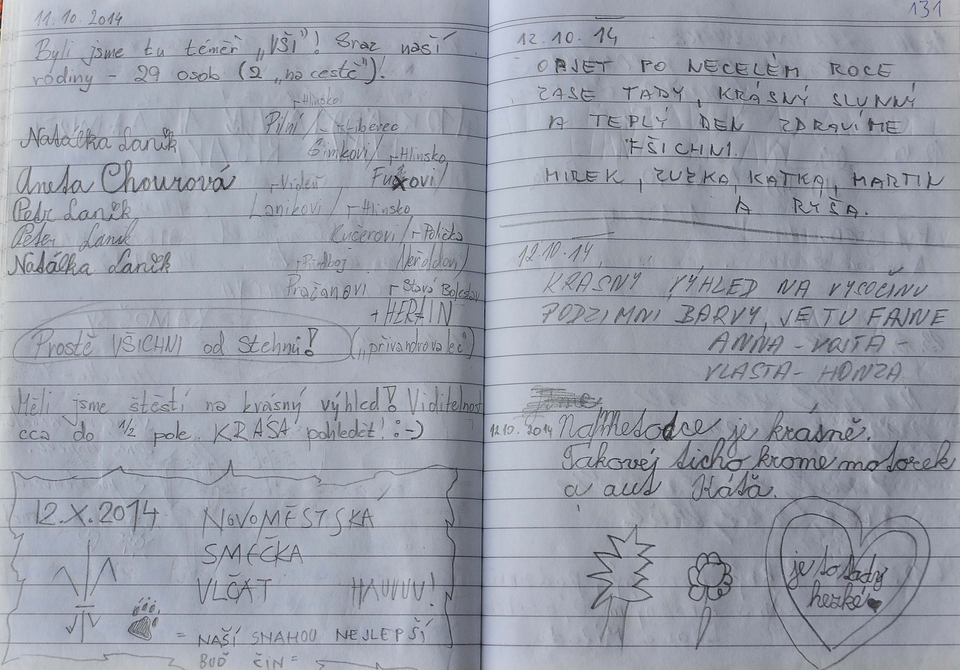 11.10.2014
Byli jsme tu téměř „VŠI"! Sraz naší
rodiny - 29 osob (2 „na cestě").
Hlinsko
Pilní / Liberec
Natálka Laník
Šimkovi / Hlinsko
Aneta Chourová
Vídeň Fuxovi /
Petr Laník
Laníkovi / Hlinsko
Peter Laník
Kučerovi / Polička
Natálka Laník
Pražanovi Stará Boleslav
+ HEŘTÍN
Prostě VŠICHNI od Stehnů! („přivandrovalec")
Měli jsme štěstí na krásný výhled! Viditelnost
cca do 1/2 pole. KRÁSA pohledět! :-)
12.X.2014 NOVOMĚSTSKÁ
SMEČKA
VLČAT HAUUUU!
= NAŠÍ SNAHOU NEJLEPŠÍ
BUĎ ČIN =
131
12.10.14
OPJET PO NECELÉM ROCE
ZASE TADY, KRÁSNÝ SLUNNÝ
A TEPLÝ DEN ZDRAVÍME
FŠICHNI.
MIREK, ZUZKA, KATKA, MARTIN
A RYŠA.
12.10.14.
KRASNY VÝHLED NA VYSOČINU
PODZIMNI BARVY, JE TU FAJNE
ANNA - VOJTA -
VLASTA - HONZA
12.10.2014 Na Mesodce je krásně.
Takovej ticho krome motorek
a aut Káťa.
je to tady
hezké